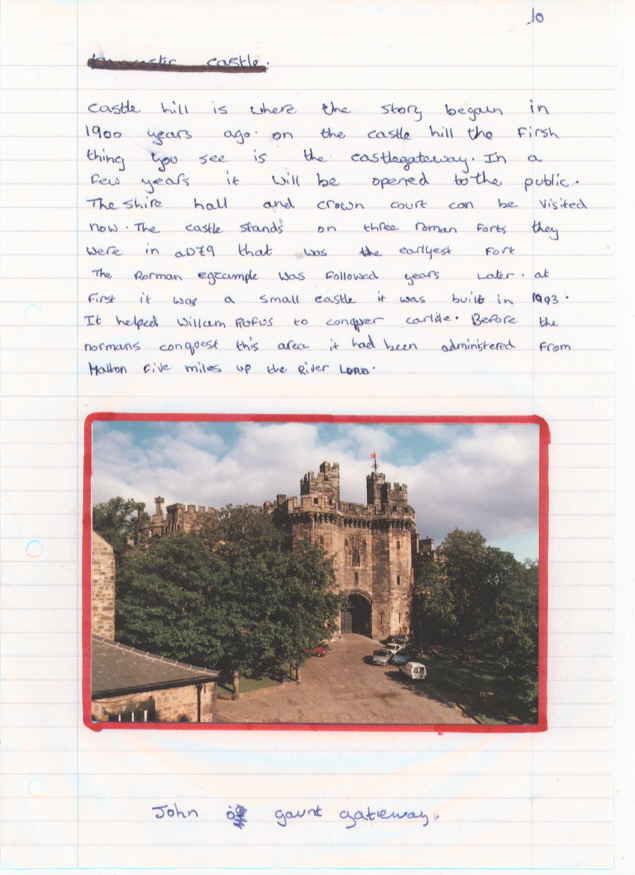 10
Lancaster castle.
castle hill is where the story begain in
1900 years ago. on the castle hill the first
thing you see is the castlegateway. In a
few years it will be opened to the public.
The shire hall and crown court can be visited
now. The castle stands on three roman forts they
were in aD79 that was the earlyest fort
The Rorman egxample was followed years later. at
first it was a small castle it was built in 1093.
It helped Willam RUFUS to conquer carlile. Before the
normans conquest this area it had been administered from
Halton five miles up the River
John of gaunt gatieway.